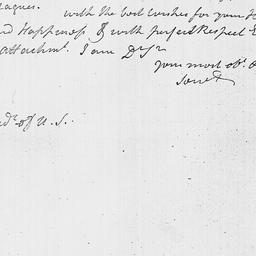 leagues.
with the best wishes for your H
nd Happiness & with perfect Respect &
attachmt. I am Dr Sir
your most obt.
servt
of U.S.